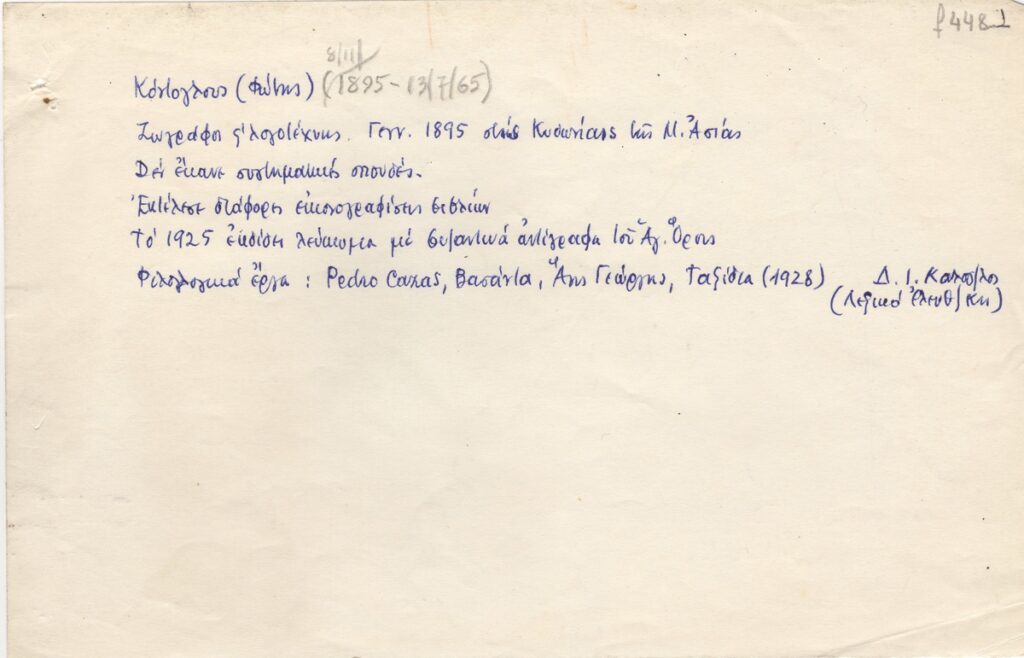 f 448
8/11/
Κόντογλους (Φώτης) (1895 - 13/7/65)
Ζωγράφος ς' λογοτέχνης. Γενν. 1895 στὶς Κυδωνίαις τῆς Μ. Ἀσίας
Δὲν ἔκανε συστηματικὲς σπουδές.
Ἐκτέλεσε διάφορες εἰκονογραφίσεις βιβλίων
Τὸ 1925 ἐκδίδει λεύκωμα μὲ βυζαντινὰ ἀντίγραφα τοῦ Ἁγ. Ὄρους
Φιλολογικὰ ἔργα : Pedro Cazas, Βασάντα, Ἅης Γεώργης, Ταξίδια (1928) Δ. Ι. Καλογ/λος
(Λεξικὸ Ἐλευθ/κη)